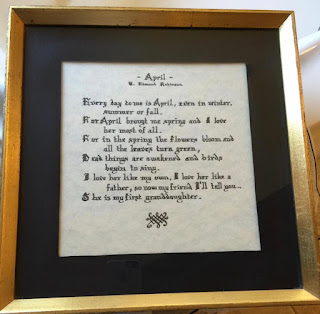 - April -
V. Edmond Robinson
Every day to me is April, even in winter,
summer or fall.
For April brougt me spring and I love
her most of all.
For in the spring the flowers bloom and
all the leaves turn green,
Dead things are awakened and birds
begin to sing.
I love her like my own, I love her like a
father, so now my friend I'll tell you...
She is my first granddaughter.